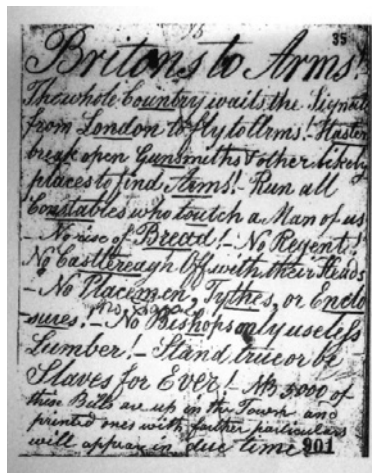 35
Britons to Arms!
The whole Country waits the Signal
from London to fly to Arms! - Haste
break open Gunsmiths & other likely
places to find Arms!! - Run all
Constables who touch a Man of us
- No rise of Bread! - No Regent!
No Castlereagh Off with their Heads
- No Placemen, Tythes, or Enclo
-sures! - No Taxes
No Bishops only useless
Lumber! - Stand true or be
Slaves for Ever! - NB 5,000 of
these Bills are up in the Town and
printed ones with farther particulars
will appear in due time
901